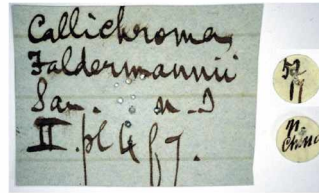 Callichroma
Faldermannii
Sau. n. D
II. pl 4 f 7.
52
17
N. China